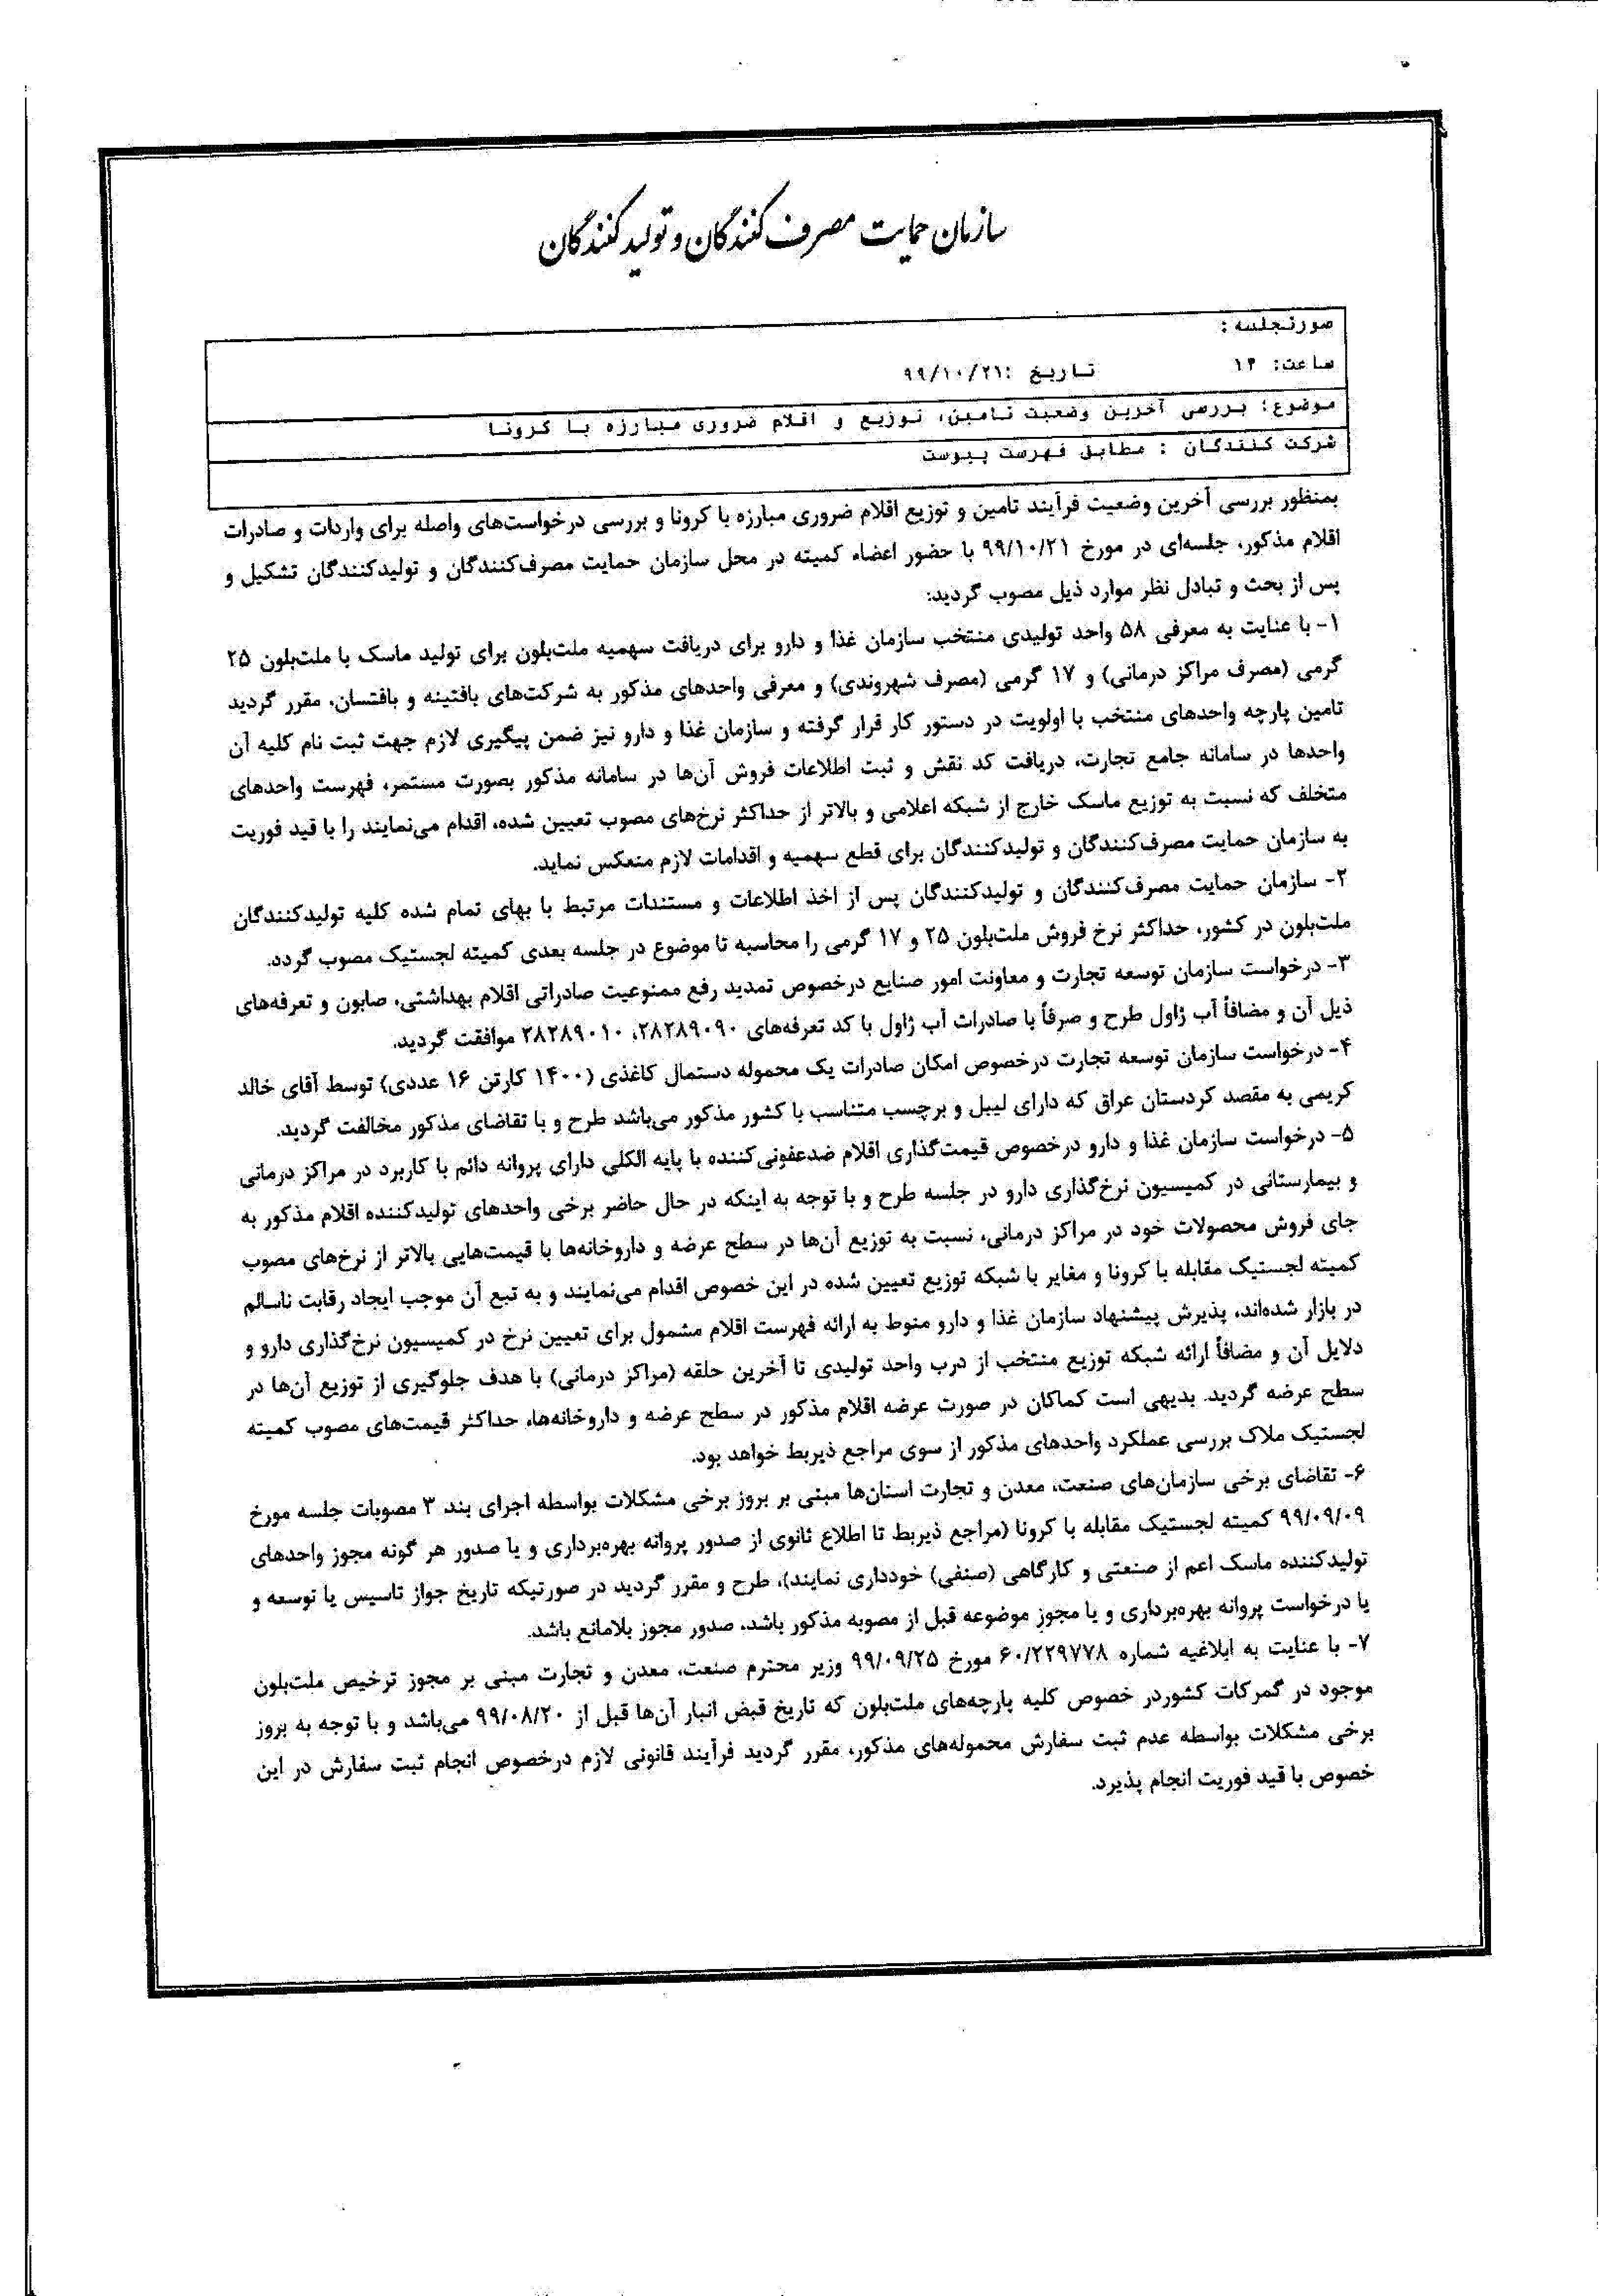 سازمان حمایت مصرف کنندگان و تولید کنندگان
صورتجلسه :
ساعت: ۱۴ تاریخ :۹۹/۱۰/۲۱
موضوع: بررسی آخرین وضعیت تامین، توزیع و اقلام ضروری مبارزه با کرونا
شرکت کنندگان : مطابق فهرست پیوست
بمنظور بررسی آخرین وضعیت فرآیند تامین و توزیع اقلام ضروری مبارزه با کرونا و بررسی درخواست‌های واصله برای واردات و صادرات
اقلام مذکور، جلسه‌ای در مورخ ۹۹/۱۰/۲۱ با حضور اعضاء کمیته در محل سازمان حمایت مصرف‌کنندگان و تولیدکنندگان تشکیل و
پس از بحث و تبادل نظر موارد ذیل مصوب گردید:
۱- با عنایت به معرفی ۵۸ واحد تولیدی منتخب سازمان غذا و دارو برای دریافت سهمیه ملت‌بلون برای تولید ماسک با ملت‌بلون ۲۵
گرمی (مصرف مراکز درمانی) و ۱۷ گرمی (مصرف شهروندی) و معرفی واحدهای مذکور به شرکت‌های بافتینه و بافتسان، مقرر گردید
تامین پارچه واحدهای منتخب با اولویت در دستور کار قرار گرفته و سازمان غذا و دارو نیز ضمن پیگیری لازم جهت ثبت نام کلیه آن
واحدها در سامانه جامع تجارت، دریافت کد نقش و ثبت اطلاعات فروش آن‌ها در سامانه مذکور بصورت مستمر، فهرست واحدهای
متخلف که نسبت به توزیع ماسک خارج از شبکه اعلامی و بالاتر از حداکثر نرخ‌های مصوب تعیین شده، اقدام می‌نمایند را با قید فوریت
به سازمان حمایت مصرف‌کنندگان و تولیدکنندگان برای قطع سهمیه و اقدامات لازم منعکس نماید.
۲- سازمان حمایت مصرف‌کنندگان و تولیدکنندگان پس از اخذ اطلاعات و مستندات مرتبط با بهای تمام شده کلیه تولیدکنندگان
ملت‌بلون در کشور، حداکثر نرخ فروش ملت‌بلون ۲۵ و ۱۷ گرمی را محاسبه تا موضوع در جلسه بعدی کمیته لجستیک مصوب گردد.
۳- درخواست سازمان توسعه تجارت و معاونت امور صنایع درخصوص تمدید رفع ممنوعیت صادراتی اقلام بهداشتی، صابون و تعرفه‌های
ذیل آن و مضافاً آب ژاول طرح و صرفاً با صادرات آب ژاول با کد تعرفه‌های ۲۸۲۸۹۰۹۰، ۲۸۲۸۹۰۱۰ موافقت گردید.
۴- درخواست سازمان توسعه تجارت درخصوص امکان صادرات یک محموله دستمال کاغذی (۱۴۰۰ کارتن ۱۶ عددی) توسط آقای خالد
کریمی به مقصد کردستان عراق که دارای لیبل و برچسب متناسب با کشور مذکور می‌باشد طرح و با تقاضای مذکور مخالفت گردید.
۵- درخواست سازمان غذا و دارو درخصوص قیمت‌گذاری اقلام ضدعفونی‌کننده با پایه الکلی دارای پروانه دائم با کاربرد در مراکز درمانی
و بیمارستانی در کمیسیون نرخ‌گذاری دارو در جلسه طرح و با توجه به اینکه در حال حاضر برخی واحدهای تولیدکننده اقلام مذکور به
جای فروش محصولات خود در مراکز درمانی، نسبت به توزیع آن‌ها در سطح عرضه و داروخانه‌ها با قیمت‌هایی بالاتر از نرخ‌های مصوب
کمیته لجستیک مقابله با کرونا و مغایر با شبکه توزیع تعیین شده در این خصوص اقدام می‌نمایند و به تبع آن موجب ایجاد رقابت ناسالم
در بازار شده‌اند، پذیرش پیشنهاد سازمان غذا و دارو منوط به ارائه فهرست اقلام مشمول برای تعیین نرخ در کمیسیون نرخ‌گذاری دارو و
دلایل آن و مضافاً ارائه شبکه توزیع منتخب از درب واحد تولیدی تا آخرین حلقه (مراکز درمانی) با هدف جلوگیری از توزیع آن‌ها در
سطح عرضه گردید. بدیهی است کماکان در صورت عرضه اقلام مذکور در سطح عرضه و داروخانه‌ها، حداکثر قیمت‌های مصوب کمیته
لجستیک ملاک بررسی عملکرد واحدهای مذکور از سوی مراجع ذیربط خواهد بود.
۶- تقاضای برخی سازمان‌های صنعت، معدن و تجارت استان‌ها مبنی بر بروز برخی مشکلات بواسطه اجرای بند ۳ مصوبات جلسه مورخ
۹۹/۰۹/۰۹ کمیته لجستیک مقابله با کرونا (مراجع ذیربط تا اطلاع ثانوی از صدور پروانه بهره‌برداری و یا صدور هر گونه مجوز واحدهای
تولیدکننده ماسک اعم از صنعتی و کارگاهی (صنفی) خودداری نمایند)، طرح و مقرر گردید در صورتیکه تاریخ جواز تاسیس یا توسعه و
یا درخواست پروانه بهره‌برداری و یا مجوز موضوعه قبل از مصوبه مذکور باشد، صدور مجوز بلامانع باشد.
۷- با عنایت به ابلاغیه شماره ۶۰/۲۲۹۷۷۸ مورخ ۹۹/۰۹/۲۵ وزیر محترم صنعت، معدن و تجارت مبنی بر مجوز ترخیص ملت‌بلون
موجود در گمرکات کشوردر خصوص کلیه پارچه‌های ملت‌بلون که تاریخ قبض انبار آن‌ها قبل از ۹۹/۰۸/۲۰ می‌باشد و با توجه به بروز
برخی مشکلات بواسطه عدم ثبت سفارش محموله‌های مذکور، مقرر گردید فرآیند قانونی لازم درخصوص انجام ثبت سفارش در این
خصوص با قید فوریت انجام پذیرد.